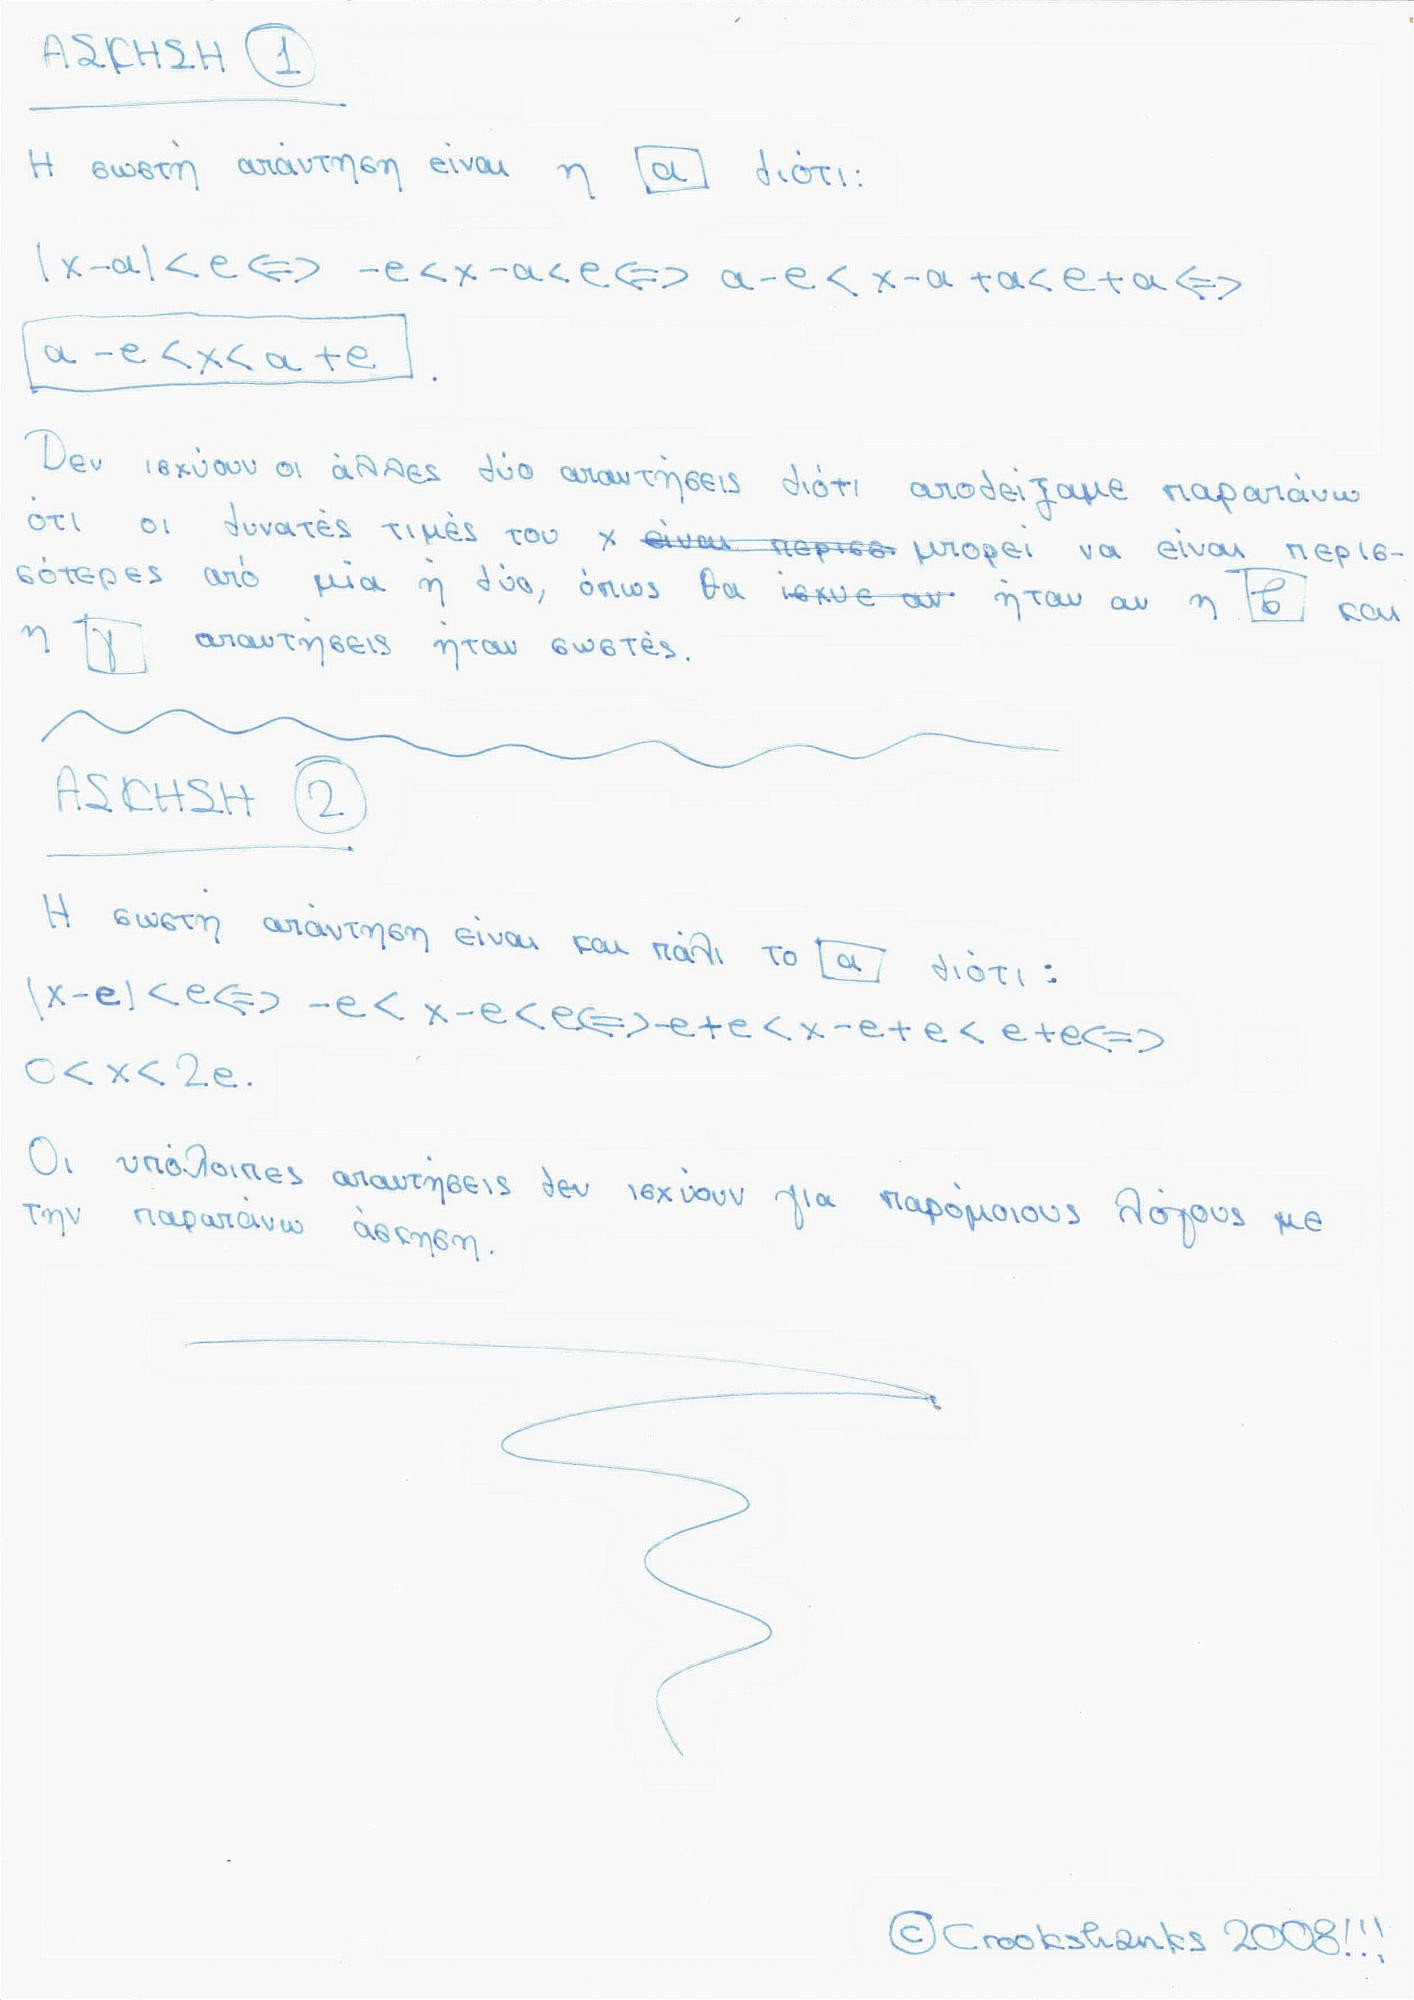 ΑΣΚΗΣΗ 1
Η σωστή απάντηση είναι η α διότι:
|x-α|<e<=> -e<x-α<e<=> α-e<x-α+α<e+α<=>
α-e<x<α+e.
Δεν ισχύουν οι άλλες δύο απαντήσεις διότι αποδείξαμε παραπάνω
ότι οι δυνατές τιμές του x είναι περισσ μπορεί να είναι περισ-
σότερες από μία ή δύο, όπως θα ίσχυε αν ήταν αν η β και
η γ απαντήσεις ήταν σωστές.
ΑΣΚΗΣΗ 2
Η σωστή απάντηση είναι και πάλι το α διότι:
|x-e|<e<=> -e<x-e<e<=>-e+e<x-e+e<e+e<=>
0<x<2e.
Οι υπόλοιπες απαντήσεις δεν ισχύουν για παρόμοιους λόγους με
την παραπάνω άσκηση.
©Crookshanks 2008!!!